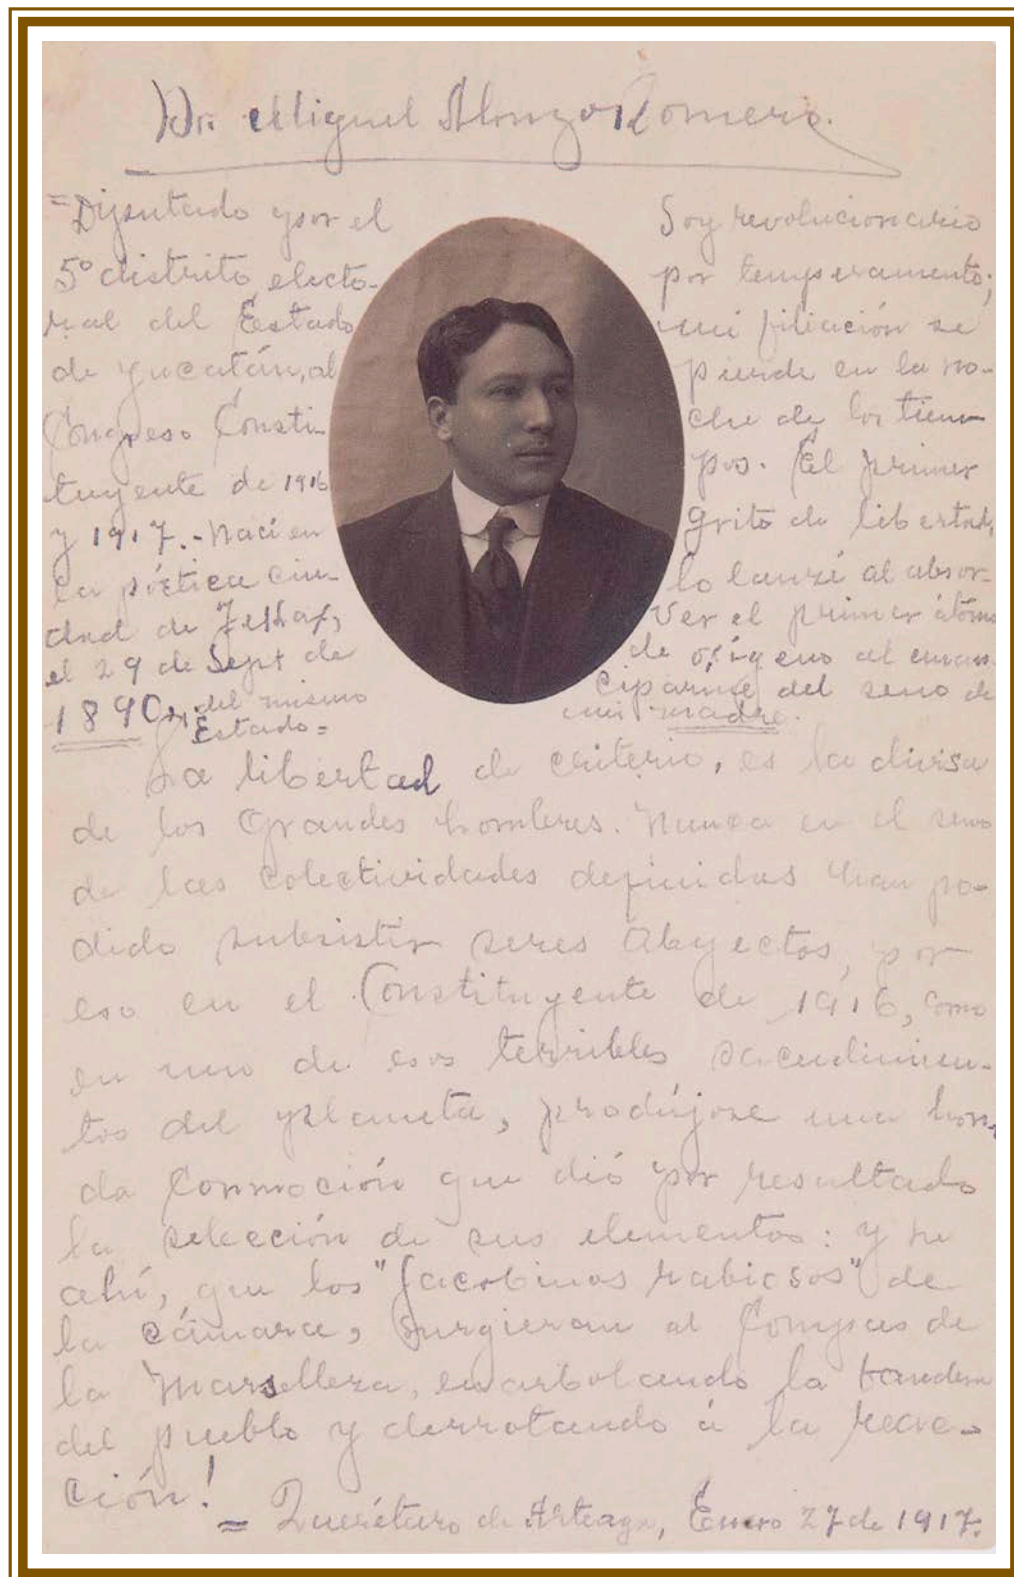 Dr. Miguel Alonzo Romero.
=Diputado por el
5º distrito electo-
ral del Estado
de Yucatán, al
Congreso Consti-
tuyente de 1916
y 1917.- Nací en
la poética ciu-
dad de
el 29 de Sept de
1890, del mismo
Estado=
Soy revolucionario
por temperamento;
mi filiación se
pierde en la no-
che de los tiem-
pos. El primer
grito de libertad,
lo lanzé al absor-
ver el primer átomo
de oxígeno al eman-
ciparme del seno de
mi madre.
La libertad de criterio, es la divisa
de los Grandes hombres. Nunca en el seno
de las Colectividades definidas han po-
dido subsistir seres Abyectos, por
eso en el Constituyente de 1916, como
en uno de esos terribles sacudimien-
tos del planeta, prodújose una hon-
da Conmoción que dió por resultado
la selección de sus elementos: y he
ahí, que los "Jacobinos rabiosos" de
la Cámara, surgieran al Compas de
la Marselleza, enarbolando la bandera
del pueblo y derrotando á la reac-
ción!
= Querétaro de Arteaga, Enero 27 de 1917.